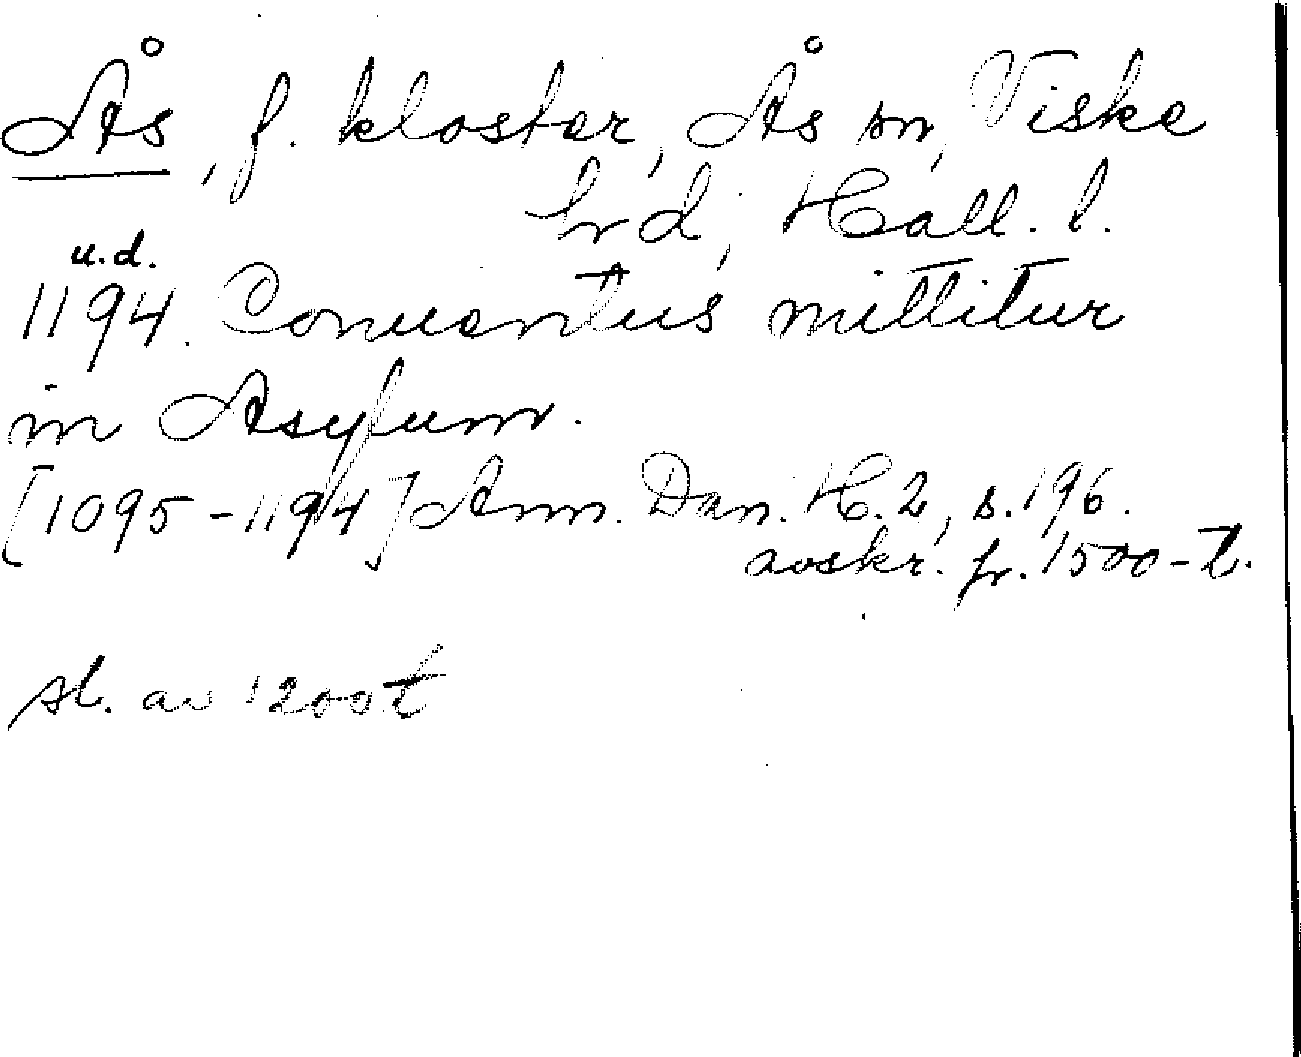 Ås, f. kloster, Ås sn, Viske
hrd, Hall. l.
u.d.
1194. Conuentus mittitur
in Asylum.
[1095-1194] Ann. Dan. H. 2, s. 196.
avskr. fr. 1500-t.
sl. av 1200t